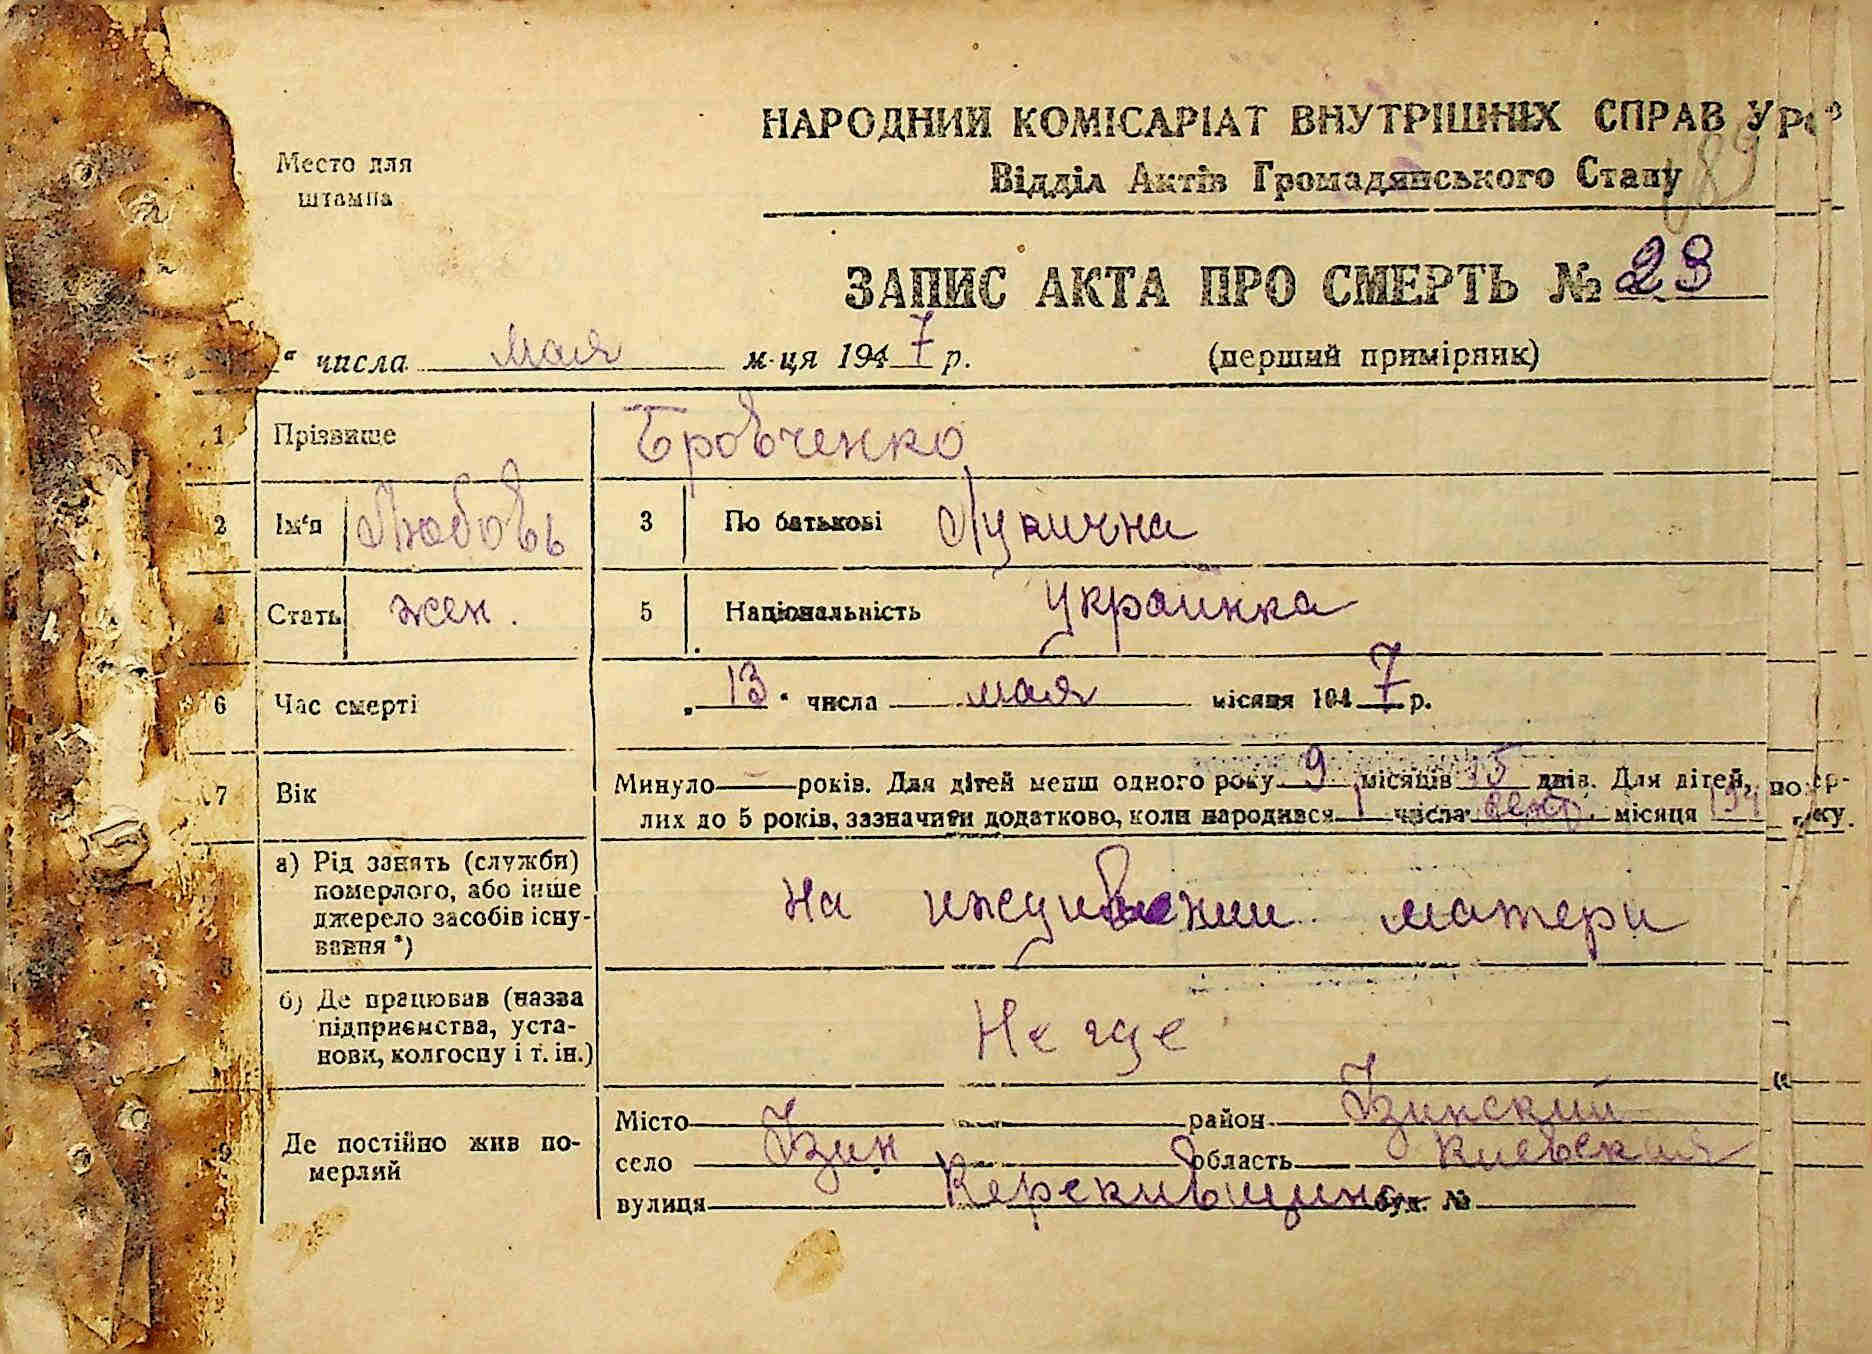 НАРОДНИЙ КОМІСАРІАТ ВНУТРІШНІХ СПРАВ УРСР
Відділ Актів Громадянського Стану
189
Место для
штампа
ЗАПИС АКТА ПРО СМЕРТЬ № 23
" числа мая м-ця 1947 р. (перший примірник)
1 Прізвище Бровченко
2 Ім'я Любовь 3 По батькові Лукична
4 Стать жен. 5 Національність украинка
6 Час смерті „13" числа мая місяця 1947 р.
7 Вік Минуло — років. Для дітей менш одного року 9 місяців 15 днів. Для дітей, помер-
лих до 5 років, зазначити додатково, коли народився числа місяця року.
а) Рід занять (служби)
померлого, або інше
джерело засобів існу-
вання *)
на иждивении матери
8
б) Де працював (назва
підприємства, уста-
нови, колгоспу і т. ін.)
Не где
9 Де постійно жив по-
мерлий
Місто район Узинский
село Узин область Киевская
вулиця буд. №